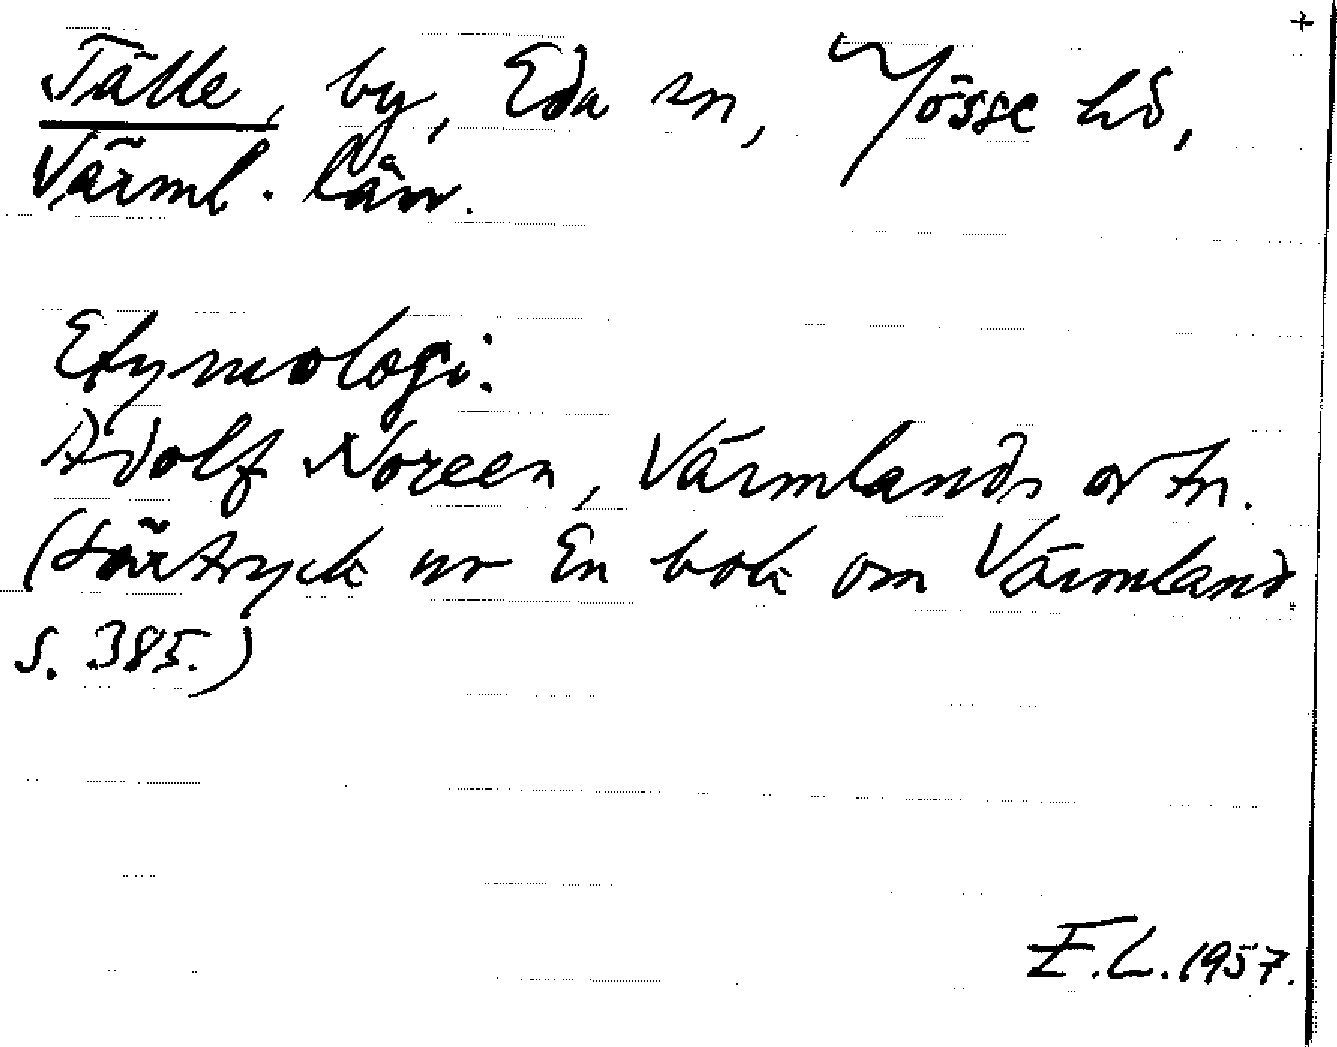 +
Tälle, by, Eda sn, Jösse hd,
Värml. län.
Etymologi:
Adolf Noreen, Värmlands ortn.
(särtryck ur En bok om Värmland
s. 385.)
E.L. 1957.